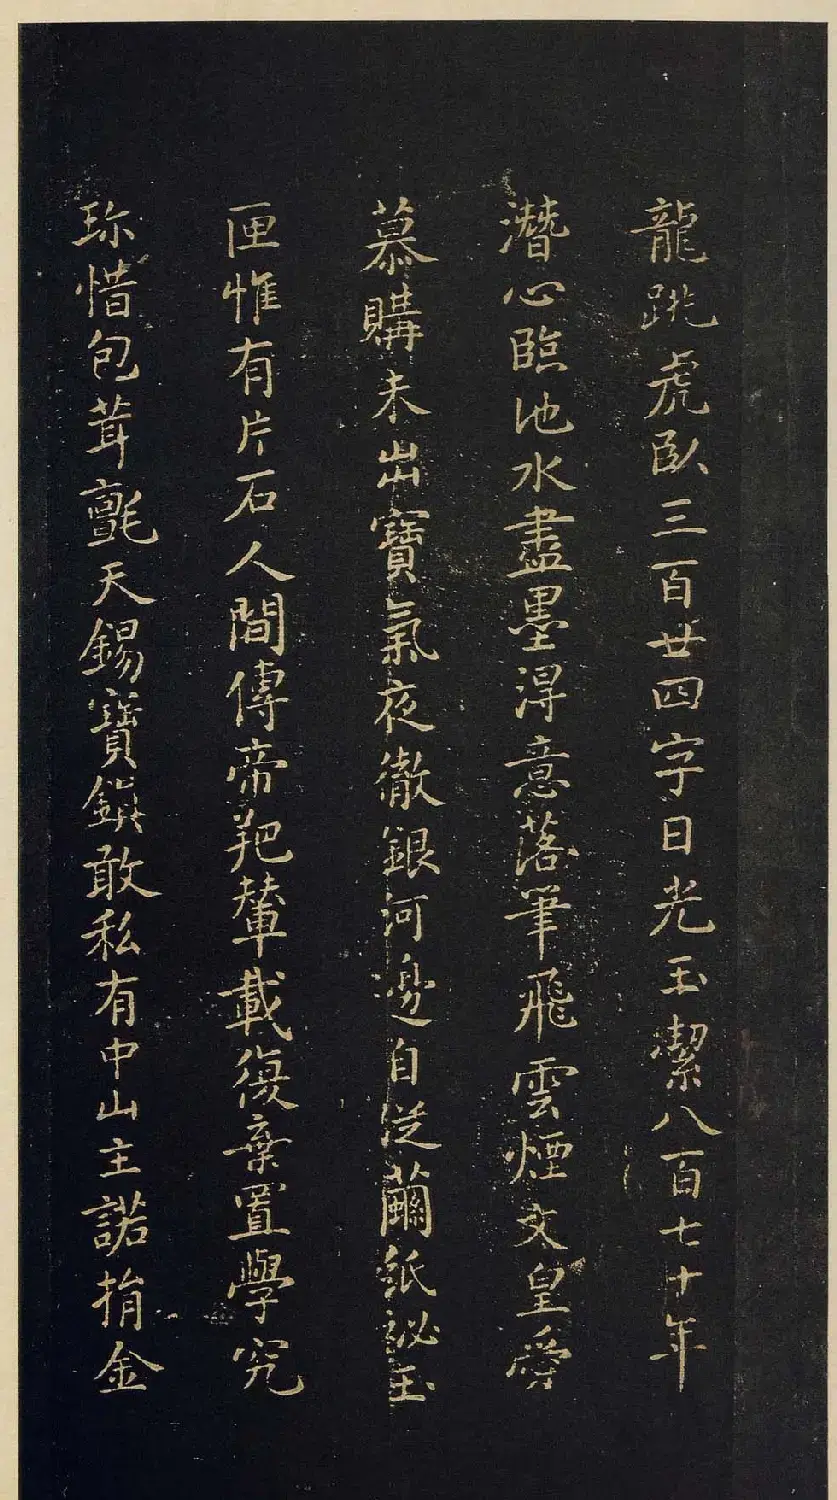 龍跳虎臥三百廿四字日光玉潔八百七十年
潛心臨池水盡墨淂意落筆飛雲煙文皇愛
慕購未出寶氣夜徹銀河邊自従繭紙祕玉
匣惟有片石人間傳帝羓輦載復棄置學究
珎惜包茸氊天錫寶鎮敢私有中山主諾捐金